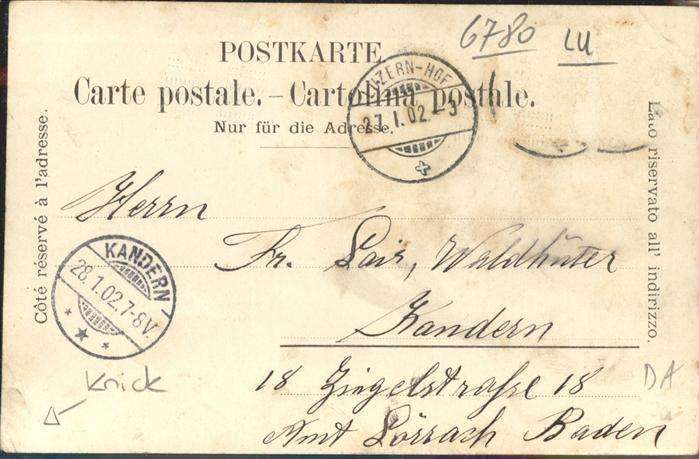 6780 LU
POSTKARTE
Carte postale. – Cartolina postale.
Nur für die Adresse.
LUZERN-HOF
27.I.02.-3
Côté réservé à l'adresse.
Lato riservato all' indirizzo.
Herrn
Fr. Lair, Waldhüter
Kandern
18 Ziegelstraße 18
Amt Lörrach Baden
KANDERN
28.1.02.7-8V.
Knick
DA